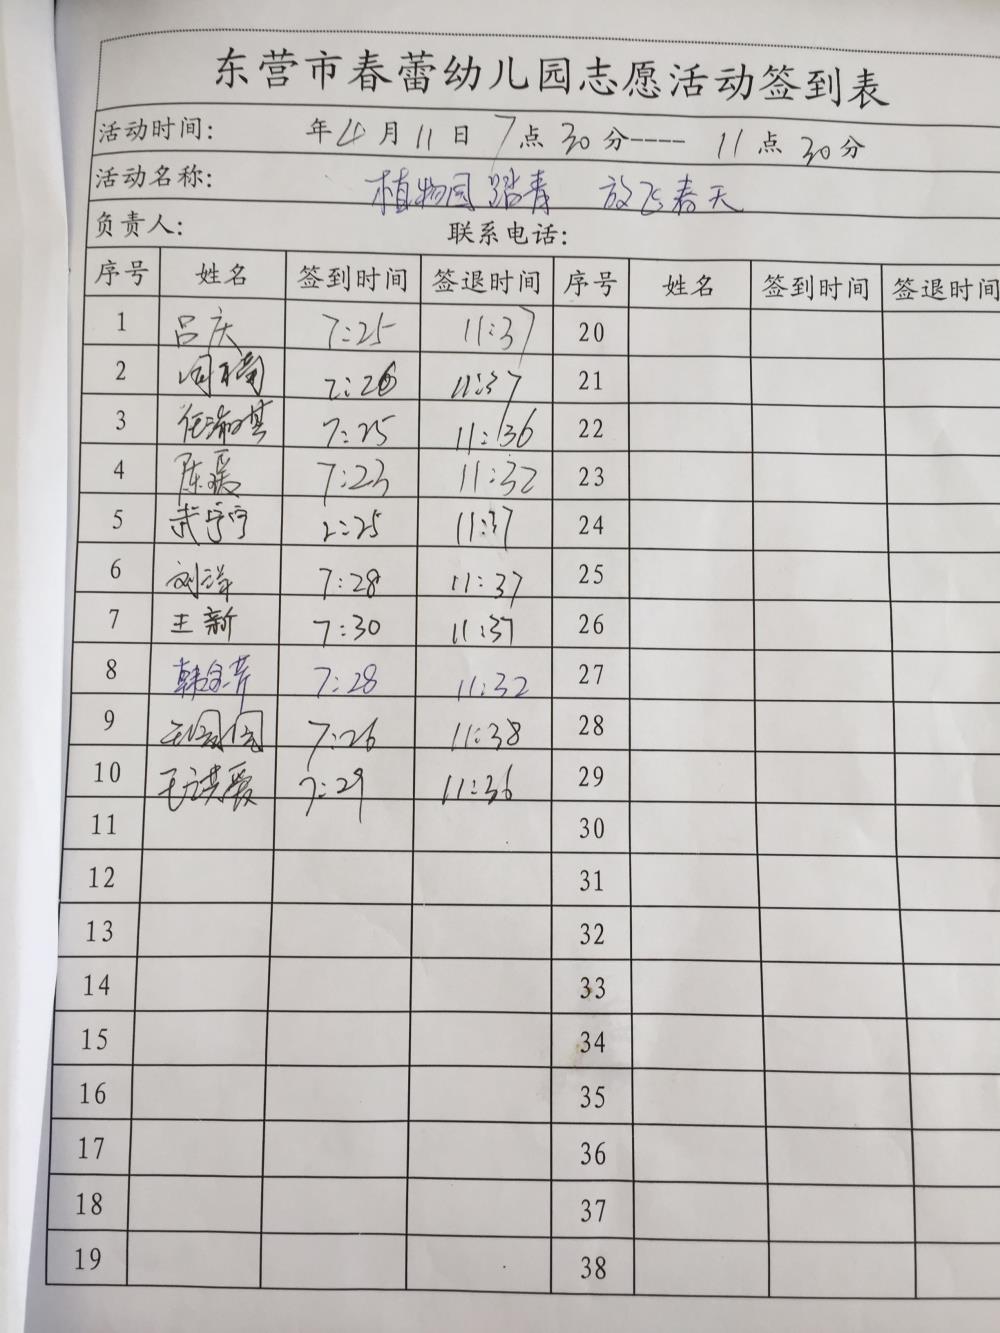 东营市春蕾幼儿园志愿活动签到表
活动时间: 年4月11日7点30分----11点30分
活动名称: 植物园踏青 放飞春天
负责人: 联系电话:
序号 姓名 签到时间 签退时间 序号 姓名 签到时间 签退时间
1 吕庆 7:25 11:37 20
2 7:26 11:37 21
3 7:25 11:36 22
4 陈爱 7:23 11:32 23
5 武宁宁 7:25 11:37 24
6 刘萍 7:28 11:37 25
7 王新 7:30 11:37 26
8 7:28 11:32 27
9 7:26 11:38 28
10 7:29 11:36 29
11 30
12 31
13 32
14 33
15 34
16 35
17 36
18 37
19 38